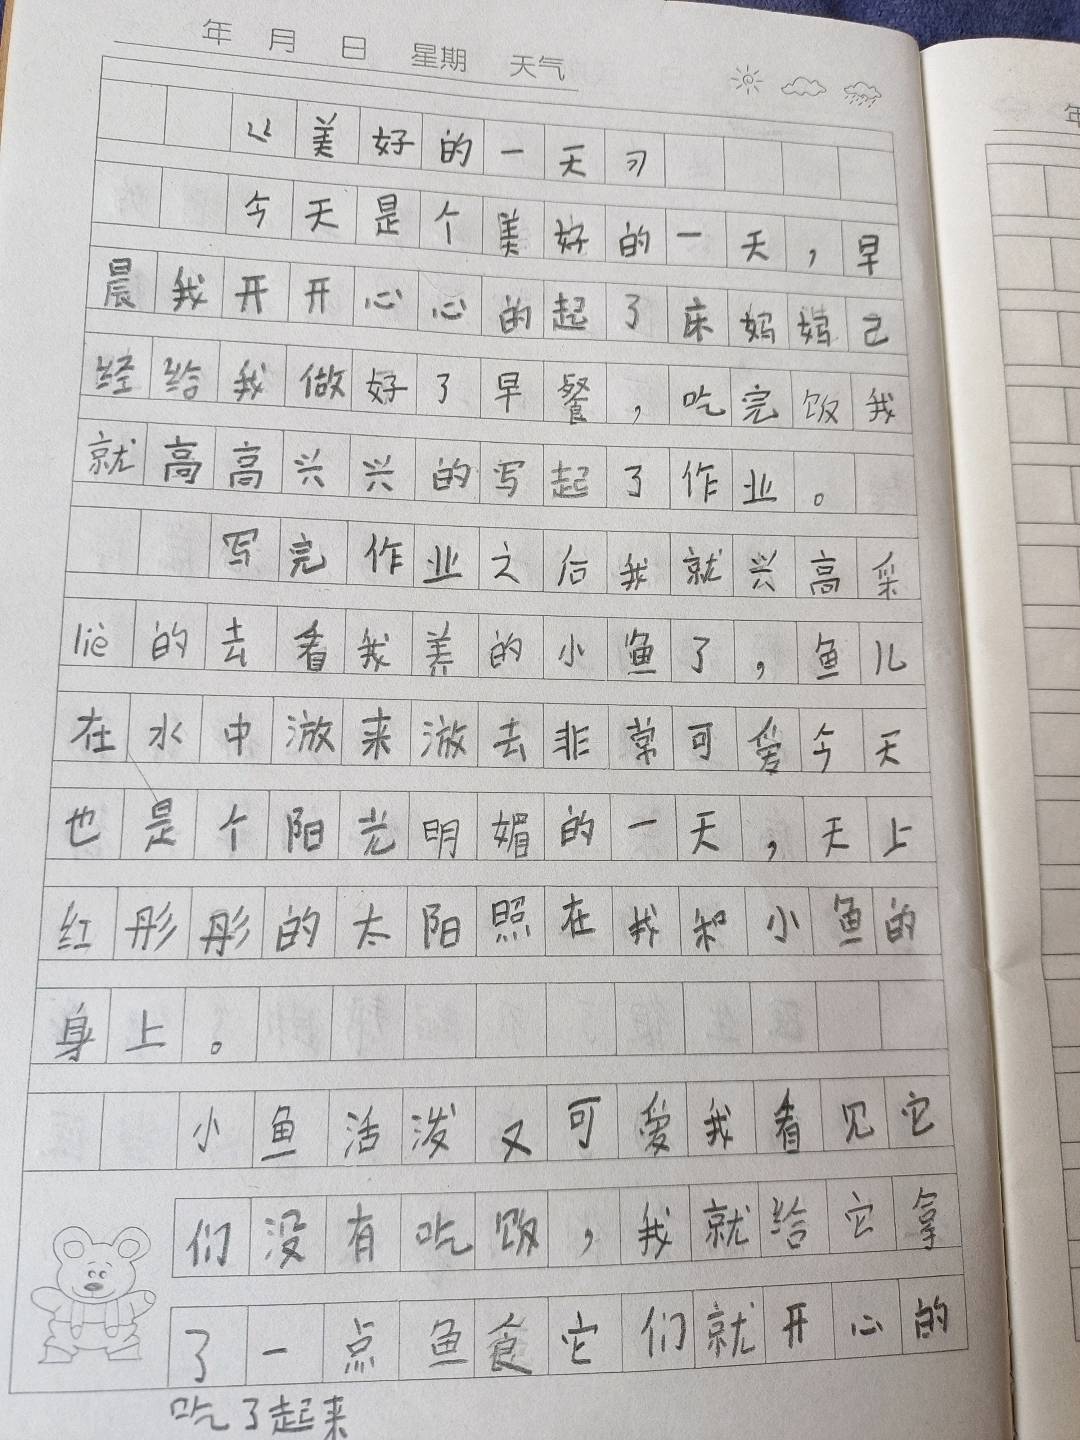 年 月 日 星期 天气
“美好的一天”
今天是个美好的一天，早
晨我开开心心的起了床妈妈已
经给我做好了早餐，吃完饭我
就高高兴兴的写起了作业。
写完作业之后我就兴高采
liè的去看我养的小鱼了，鱼儿
在水中游来游去非常可爱今天
也是个阳光明媚的一天，天上
红彤彤的太阳照在我和小鱼的
身上。
小鱼活泼又可爱我看见它
们没有吃饭，我就给它拿
了一点鱼食它们就开心的
吃了起来
年